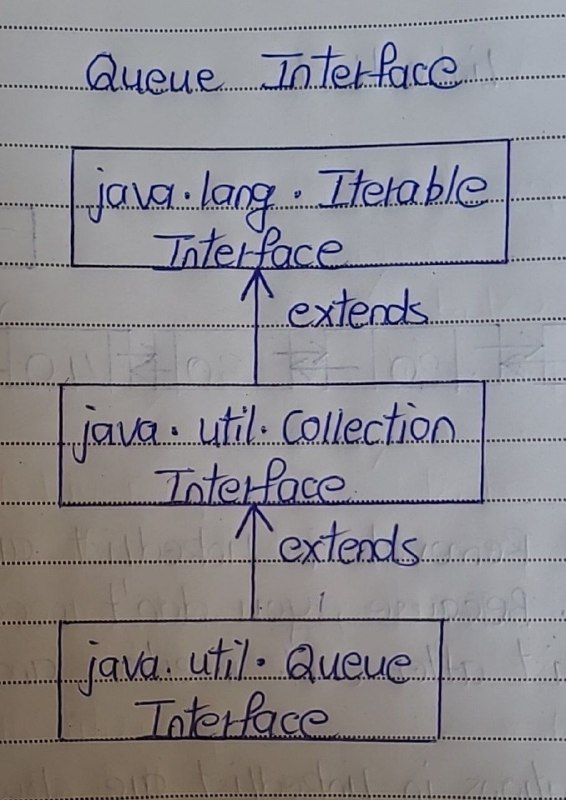 Queue Interface
java.lang.Iterable
Interface
extends
java.util.Collection
Interface
extends
java.util.Queue
Interface